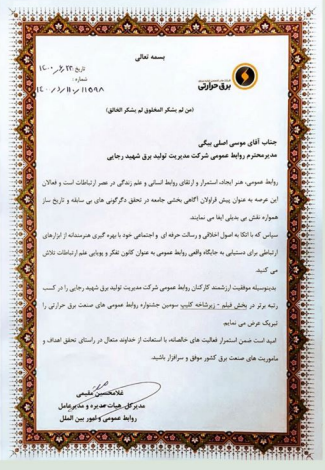 بسمه تعالی
برق حرارتی
تاریخ:
شماره:
(من لم یشکر المخلوق لم یشکر الخالق)
جناب آقای موسی اصلی بیگی
مدیرمحترم روابط عمومی شرکت مدیریت تولید برق شهید رجایی
روابط عمومی، هنر ایجاد، استمرار و ارتقای روابط انسانی و علم زندگی در عصر ارتباطات است و فعالان
این عرصه به عنوان پیش قراولان آگاهی بخشی جامعه در تحقق دگرگونی های بی سابقه و تاریخ ساز
همواره نقش بی بدیلی ایفا می نمایند.
سپاس که با اتکا به اصول اخلاقی و رسالت حرفه ای و اجتماعی خود با بهره گیری هنرمندانه از ابزارهای
ارتباطی برای دستیابی به جایگاه واقعی روابط عمومی به عنوان کانون تفکر و پویایی علم ارتباطات تلاش
می کنید.
بدینوسیله موفقیت ارزشمند کارکنان روابط عمومی شرکت مدیریت تولید برق شهید رجایی را در کسب
رتبه برتر در بخش فیلم - زیرشاخه کلیپ سومین جشنواره روابط عمومی های صنعت برق حرارتی را
تبریک عرض می نمایم.
امید است ضمن استمرار فعالیت های خالصانه، با استعانت از خداوند متعال در راستای تحقق اهداف و
ماموریت های صنعت برق کشور موفق و سرافراز باشید.
غلامحسین مقیمی
مدیرکل هیات مدیره و مدیرعامل
روابط عمومی و امور بین الملل